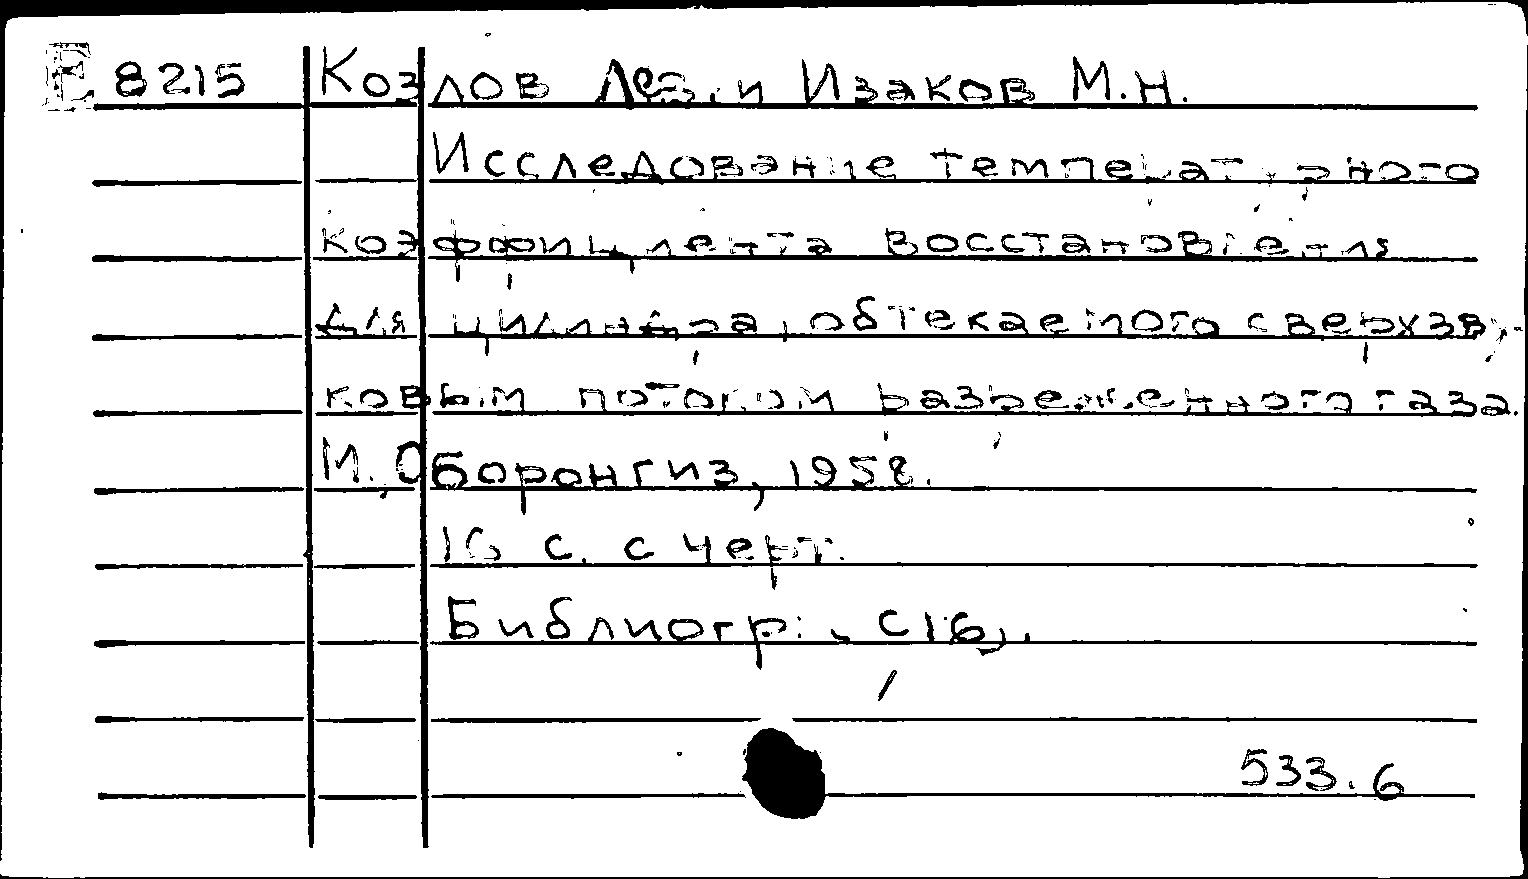 E 8215 Козлов и Изаков М.Н.
Исследование температурного
коэффициента восстановления
для цилиндра, обтекаемого сверхзву-
ковым потоком разреженного газа.
М., Оборонгиз, 1958.
16 с. с черт.
Библиогр.: с 16.
533.6